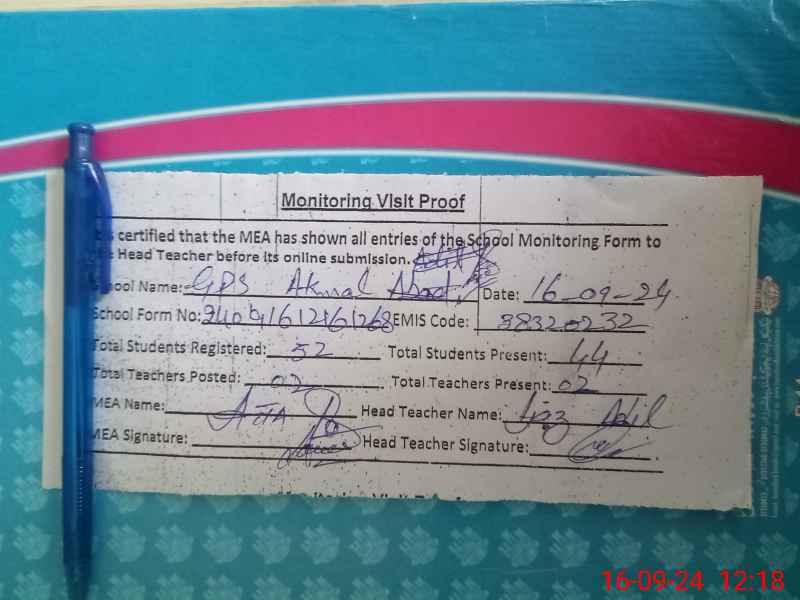 Monitoring Visit Proof
is certified that the MEA has shown all entries of the School Monitoring Form to
Head Teacher before its online submission.
School Name: GPS Akmal Abad Date: 16-09-24
School Form No: EMIS Code: 38320232
Total Students Registered: 52 Total Students Present: 44
Total Teachers Posted: 02 Total Teachers Present: 02
MEA Name: Atta Head Teacher Name: Ijaz Adil
MEA Signature: Head Teacher Signature:
16-09-24 12:18